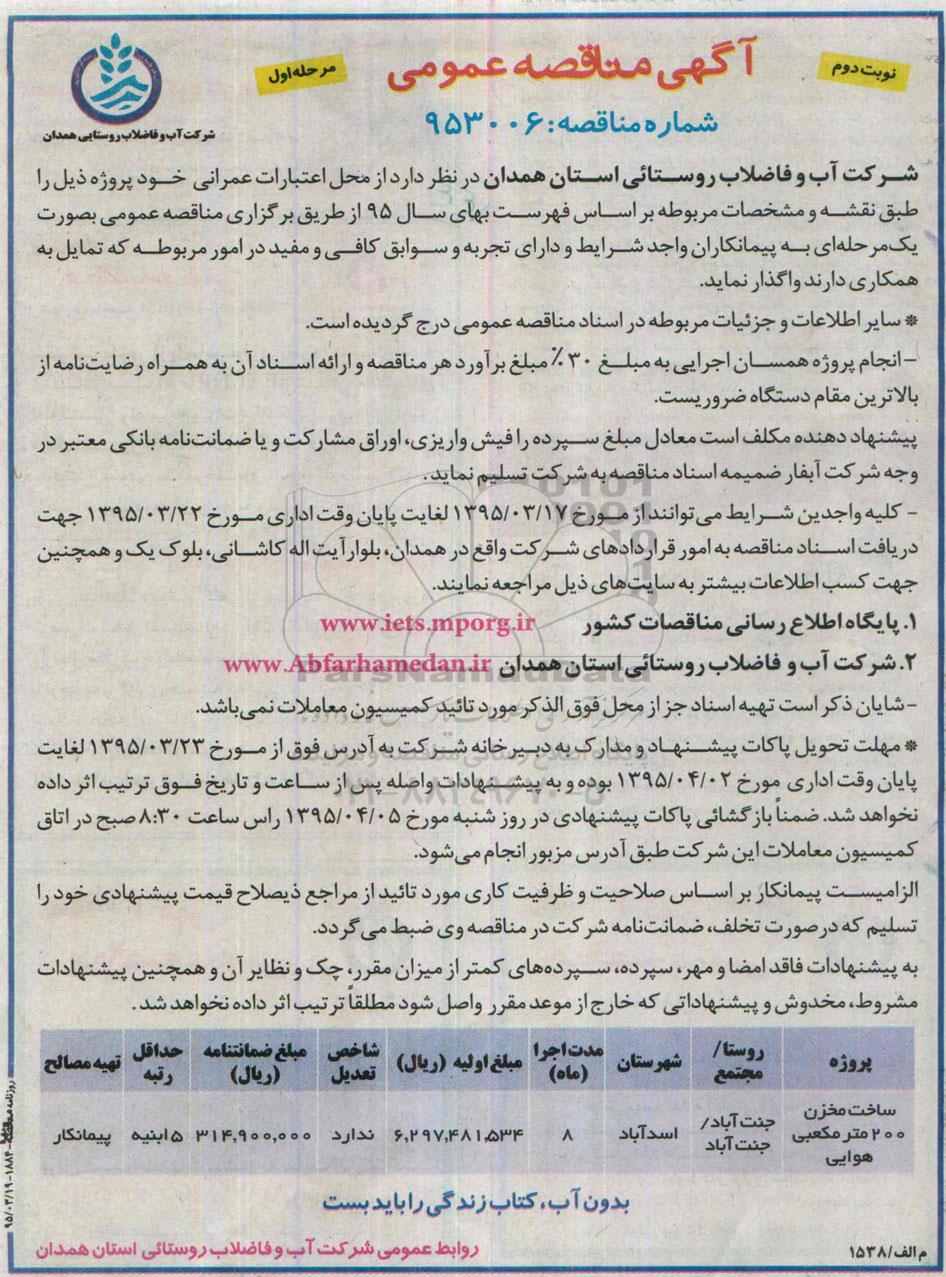 آگهی مناقصه عمومی
نوبت دوم
مرحله اول
شماره مناقصه: ۹۵۳۰۰۶
شرکت آب و فاضلاب روستایی همدان
شرکت آب و فاضلاب روستائی استان همدان در نظر دارد از محل اعتبارات عمرانی خود پروژه ذیل را
طبق نقشه و مشخصات مربوطه بر اساس فهرست بهای سال ۹۵ از طریق برگزاری مناقصه عمومی بصورت
یک‌مرحله‌ای به پیمانکاران واجد شرایط و دارای تجربه و سوابق کافی و مفید در امور مربوطه که تمایل به
همکاری دارند واگذار نماید.
* سایر اطلاعات و جزئیات مربوطه در اسناد مناقصه عمومی درج گردیده است.
- انجام پروژه همسان اجرایی به مبلغ ۳۰٪ مبلغ برآورد هر مناقصه و ارائه اسناد آن به همراه رضایت‌نامه از
بالاترین مقام دستگاه ضروریست.
پیشنهاد دهنده مکلف است معادل مبلغ سپرده را فیش واریزی، اوراق مشارکت و یا ضمانت‌نامه بانکی معتبر در
وجه شرکت آبفار ضمیمه اسناد مناقصه به شرکت تسلیم نماید.
- کلیه واجدین شرایط می‌توانند از مورخ ۱۳۹۵/۰۳/۱۷ لغایت پایان وقت اداری مورخ ۱۳۹۵/۰۳/۲۲ جهت
دریافت اسناد مناقصه به امور قراردادهای شرکت واقع در همدان، بلوار آیت اله کاشانی، بلوک یک و همچنین
جهت کسب اطلاعات بیشتر به سایت‌های ذیل مراجعه نمایند.
۱. پایگاه اطلاع رسانی مناقصات کشور www.iets.mporg.ir
۲. شرکت آب و فاضلاب روستائی استان همدان www.Abfarhamedan.ir
ParsNamadData
- شایان ذکر است تهیه اسناد جز از محل فوق الذکر مورد تائید کمیسیون معاملات نمی‌باشد.
* مهلت تحویل پاکات پیشنهاد و مدارک به دبیرخانه شرکت به آدرس فوق از مورخ ۱۳۹۵/۰۳/۲۳ لغایت
پایان وقت اداری مورخ ۱۳۹۵/۰۴/۰۲ بوده و به پیشنهادات واصله پس از ساعت و تاریخ فوق ترتیب اثر داده
نخواهد شد. ضمناً بازگشائی پاکات پیشنهادی در روز شنبه مورخ ۱۳۹۵/۰۴/۰۵ راس ساعت ۸:۳۰ صبح در اتاق
کمیسیون معاملات این شرکت طبق آدرس مزبور انجام می‌شود.
الزامیست پیمانکار بر اساس صلاحیت و ظرفیت کاری مورد تائید از مراجع ذیصلاح قیمت پیشنهادی خود را
تسلیم که در صورت تخلف، ضمانت‌نامه شرکت در مناقصه وی ضبط می گردد.
به پیشنهادات فاقد امضا و مهر، سپرده، سپرده‌های کمتر از میزان مقرر، چک و نظایر آن و همچنین پیشنهادات
مشروط، مخدوش و پیشنهاداتی که خارج از موعد مقرر واصل شود مطلقاً ترتیب اثر داده نخواهد شد.
پروژه | روستا/ مجتمع | شهرستان | مدت اجرا (ماه) | مبلغ اولیه (ریال) | شاخص تعدیل | مبلغ ضمانتنامه (ریال) | حداقل رتبه | تهیه مصالح
ساخت مخزن ۲۰۰ متر مکعبی هوایی | جنت آباد/ جنت آباد | اسدآباد | ۸ | ۶,۲۹۷,۴۸۱,۵۳۴ | ندارد | ۳۱۴,۹۰۰,۰۰۰ | ۵ ابنیه | پیمانکار
بدون آب، کتاب زندگی را باید بست
روابط عمومی شرکت آب و فاضلاب روستائی استان همدان
م الف/۱۵۳۸